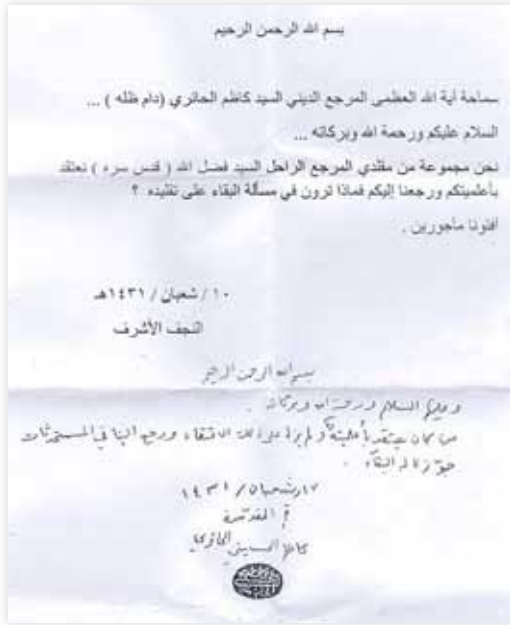 بسم الله الرحمن الرحيم
سماحة آية الله العظمى المرجع الديني السيد كاظم الحائري (دام ظله) ...
السلام عليكم ورحمة الله وبركاته ...
نحن مجموعة من مقلدي المرجع الراحل السيد فضل الله ( قدس سره ) نعتقد
بأعلميتكم ورجعنا إليكم فماذا ترون في مسألة البقاء على تقليده ؟
أفتونا مأجورين .
١٠ / شعبان / ١٤٣١هـ
النجف الأشرف
بسم الله الرحمن الرحيم
وعليكم السلام ورحمة الله وبركاته .
من كان يعتقد بأعلميته ولم يزل على ذلك الاعتقاد ورجع إلينا في المستحدثات
جوّزنا له البقاء .
١٧ / شعبان / ١٤٣١
قم المقدسة
كاظم الحسيني الحائري